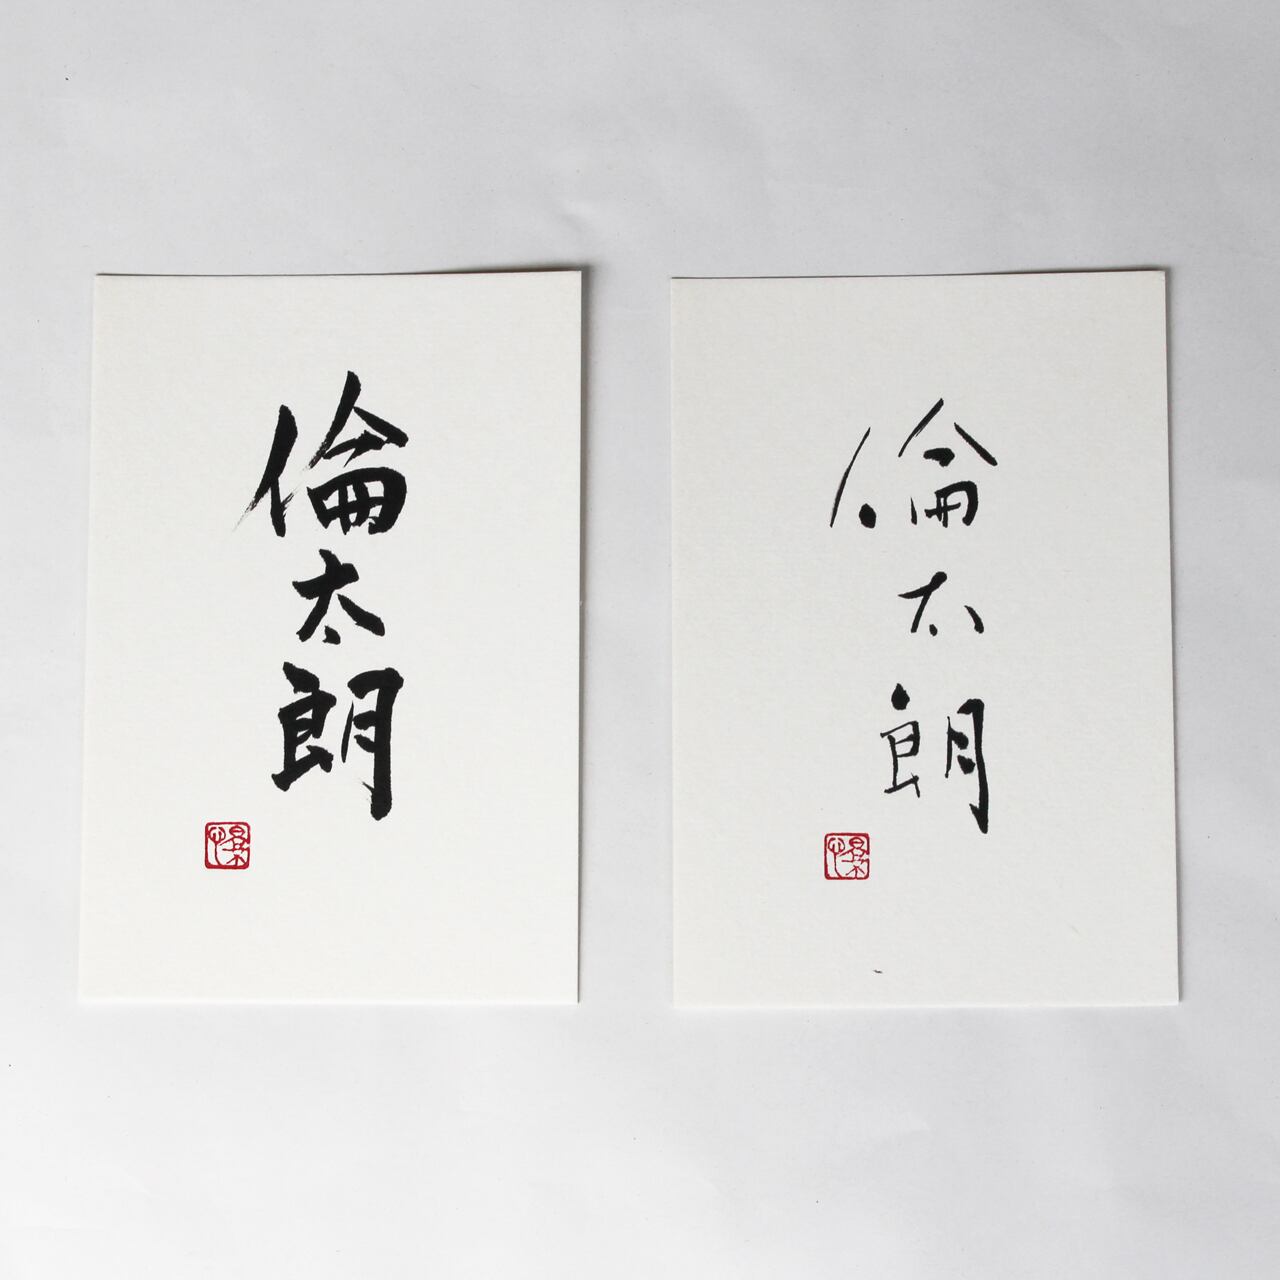 倫太朗
倫太朗